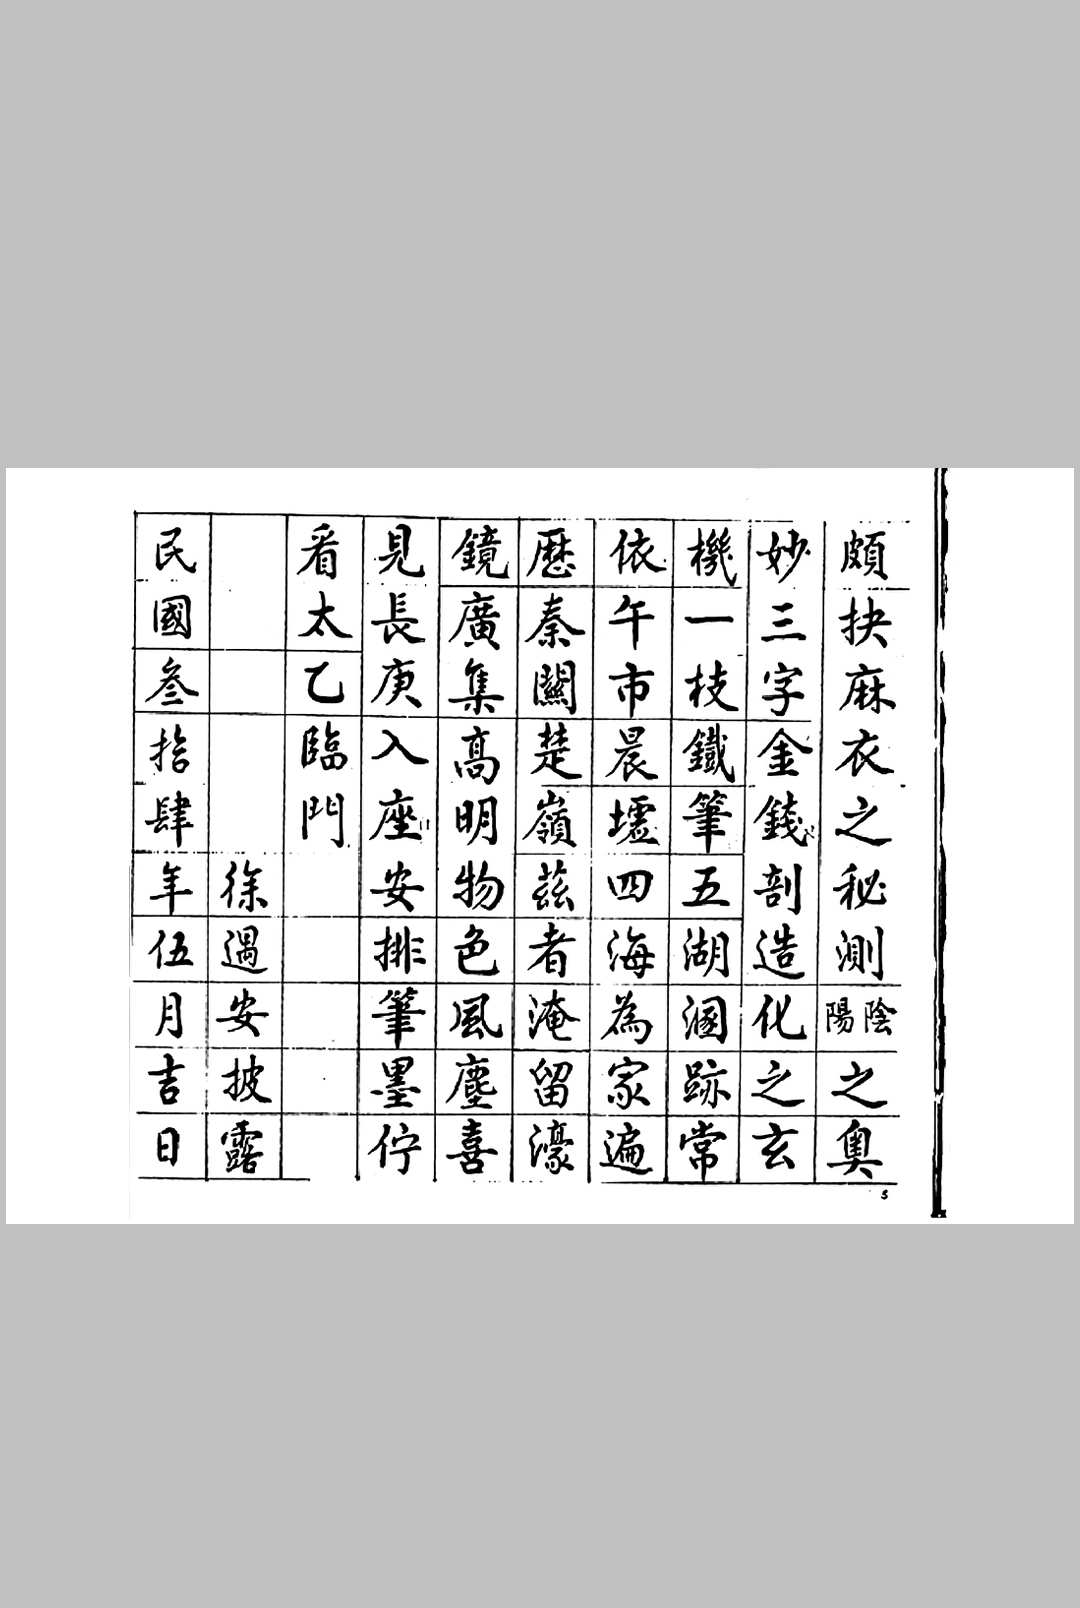 頗抉麻衣之秘測陰陽之奧
妙三字金錢剖造化之玄
機一枝鐵筆五湖溷跡常
依午市晨墟四海為家遍
歷秦關楚嶺茲者淹留濠
鏡廣集高明物色風塵喜
見長庚入座安排筆墨佇
看太乙臨門
徐遇安披露
民國叁拾肆年伍月吉日
5